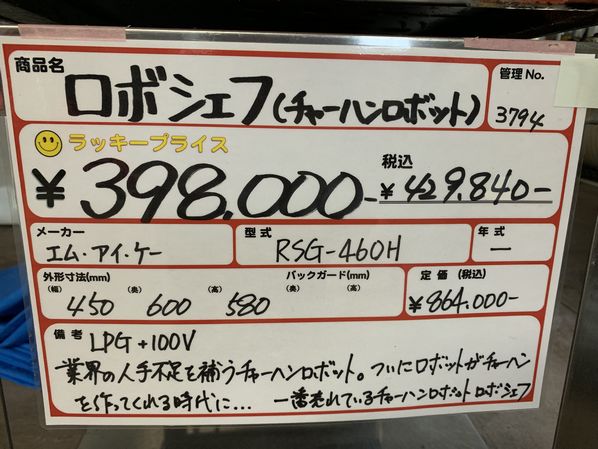 商品名
ロボシェフ(チャーハンロボット)
管理No.
3794
ラッキープライス
¥398.000-
税込
¥429.840-
メーカー
エム・アイ・ケー
型式
RSG-460H
年式
ー
外形寸法(mm)
(幅) 450 (奥) 600 (高) 580
バックガード(mm)
(奥) (高)
定価 (税込)
¥864.000-
備考
LPG+100V
業界の人手不足を補うチャーハンロボット。ついにロボットがチャーハン
を作ってくれる時代に… 一番売れているチャーハンロボットロボシェフ